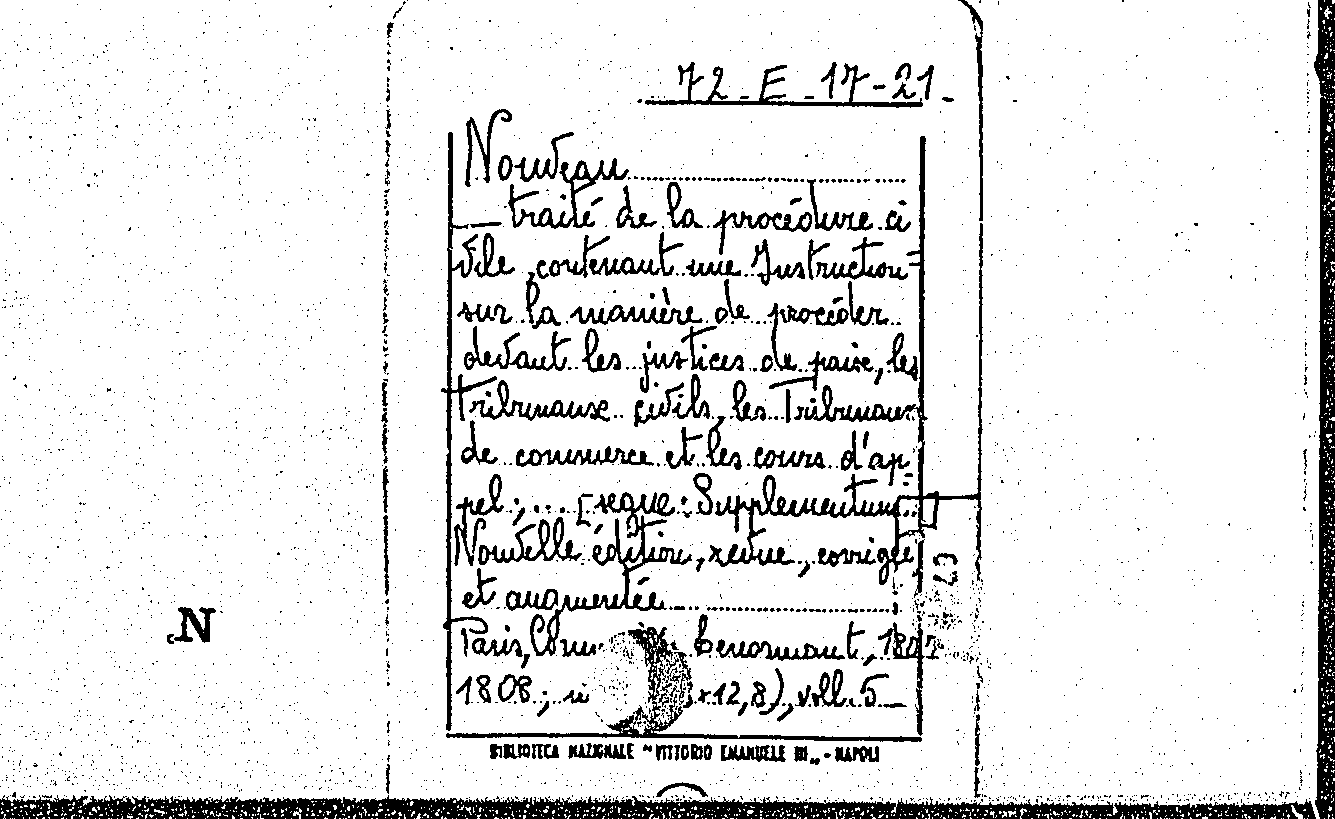 72 - E - 17-21 -
Nouveau
— traité de la procédure ci
vile, contenant une Instruction
sur la manière de procéder
devant les justices de paix, les
Tribunaux civils, les Tribunaux
de commerce et les cours d'ap=
pel; ... [segue: Supplementum.
Nouvelle édition, revue, corrigée
et augmentée
Paris, Lenormant, 1807
1808; 12,8), voll. 5 —
BIBLIOTECA NAZIONALE "VITTORIO EMANUELE III„ - NAPOLI
N